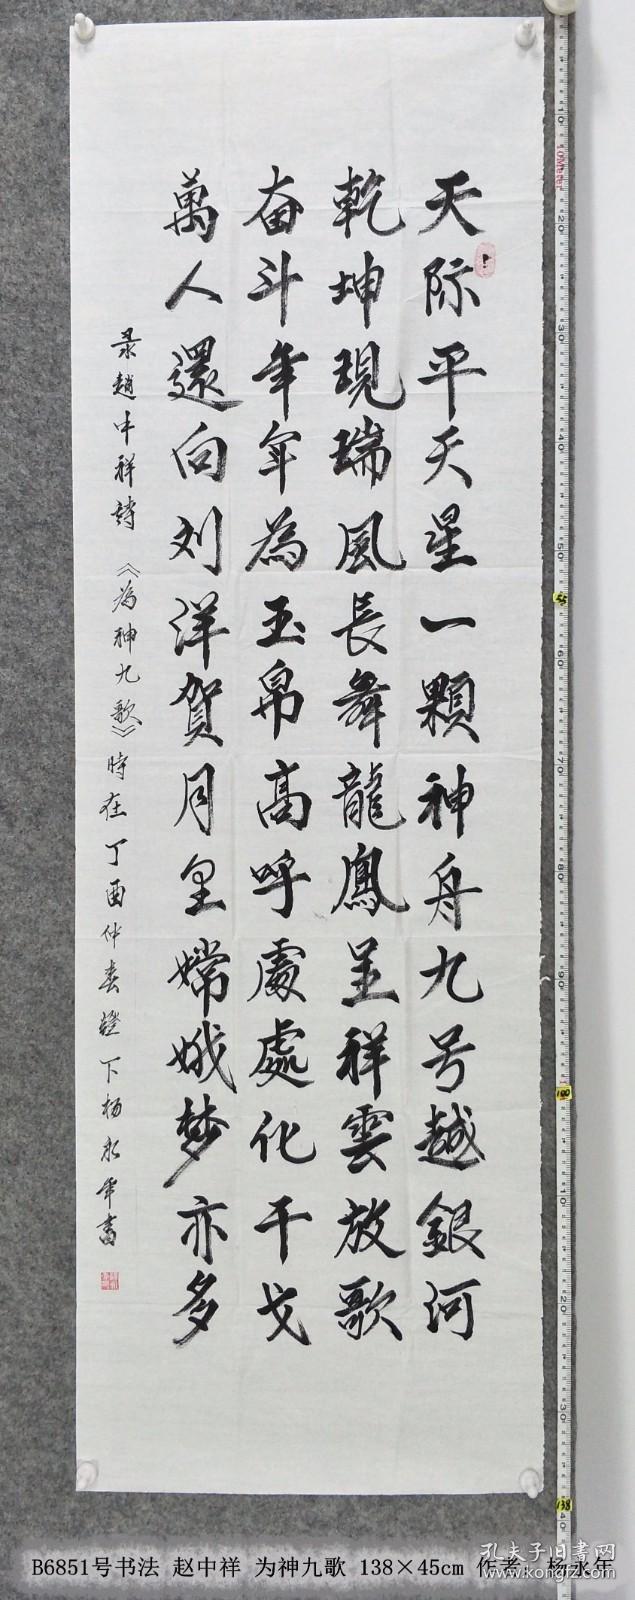 天际平天星一顆神舟九号越銀河
乾坤現瑞風長舞龍鳳呈祥雲放歌
奋斗年年為玉帛高呼處處化干戈
萬人還向刘洋賀月里嫦娥梦亦多
录趙中祥詩《為神九歌》時在丁酉仲春燈下杨永年書
B6851号书法 赵中祥 为神九歌 138×45cm 作者：杨永年
孔夫子旧书网
www.kongfz.com
10Meter
10
20
30
40
50
55
60
70
80
90
100
10
20
30
138
40